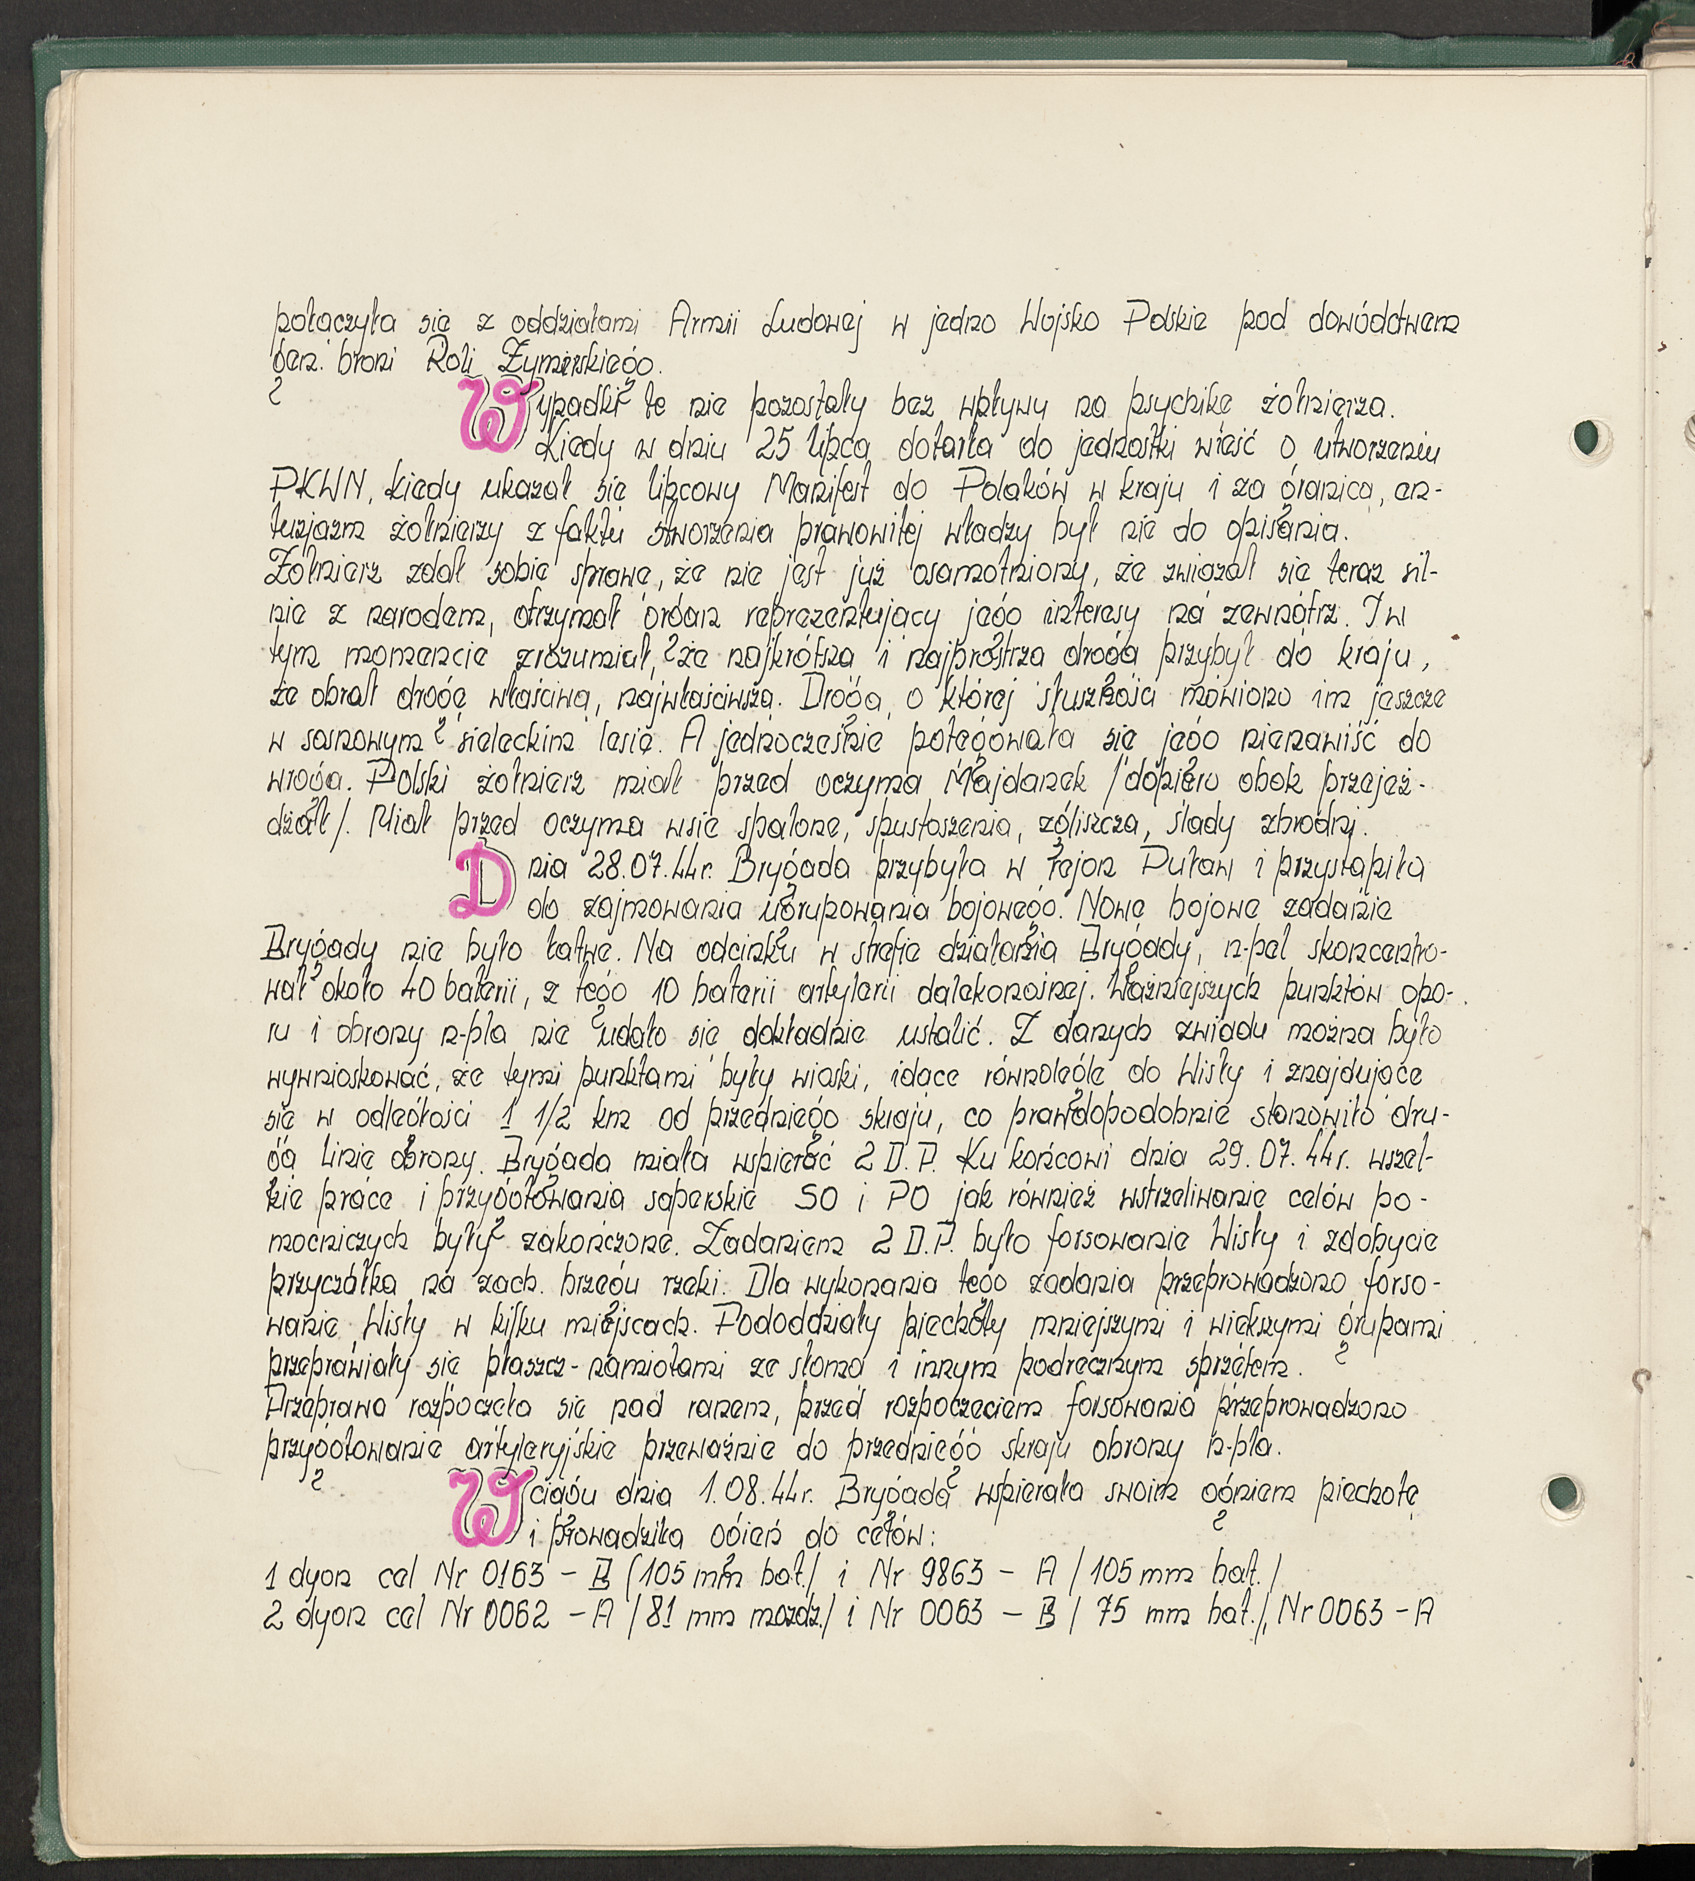 połączyła się z oddziałami Armii Ludowej w jedno Wojsko Polskie pod dowództwem
gen. broni Roli Żymierskiego.
Wypadki te nie pozostały bez wpływu na psychikę żołnierza.
Kiedy w dniu 25 lipca dotarła do jednostki wieść o utworzeniu
PKWN, kiedy ukazał się lipcowy Manifest do Polaków w kraju i za granicą, en-
tuzjazm żołnierzy z faktu stworzenia prawowitej władzy był nie do opisania.
Żołnierz zdał sobie sprawę, że nie jest już osamotniony, że związał się teraz sil-
nie z narodem, otrzymał organ reprezentujący jego interesy na zewnątrz. I w
tym momencie zrozumiał, że najkrótszą i najprostrzą drogą przybył do kraju,
że obrał drogę właściwą, najwłaściwszą. Drogą, o której słuszności mówiono im jeszcze
w sosnowym sieleckim lesie. A jednocześnie potęgowała się jego nienawiść do
wroga. Polski żołnierz miał przed oczyma Majdanek /dopiero obok przejeż-
dżał/. Miał przed oczyma wsie spalone, spustoszenia, zgliszcza, ślady zbrodni.
Dnia 28.07.44r. Brygada przybyła w rejon Puław i przystąpiła
do zajmowania ugrupowania bojowego. Nowe bojowe zadanie
Brygady nie było łatwe. Na odcinku w strefie działania Brygady, n-pel skoncentro-
wał około 40 baterii, z tego 10 baterii artylerii dalekonośnej. Ważniejszych punktów opo-
ru i obrony n-pla nie udało się dokładnie ustalić. Z danych zwiadu można było
wywnioskować, że tymi punktami były wioski, idące równolegle do Wisły i znajdujące
się w odległości 1 1/2 km od przedniego skraju, co prawdopodobnie stanowiło dru-
gą linię obrony. Brygada miała wspierać 2 D.P. Ku końcowi dnia 29.07.44r. wszel-
kie prace i przygotowania saperskie SO i PO jak również wstrzeliwanie celów po-
mocniczych były zakończone. Zadaniem 2 D.P. było forsowanie Wisły i zdobycie
przyczółka na zach. brzegu rzeki. Dla wykonania tego zadania przeprowadzono forso-
wanie Wisły w kilku miejscach. Pododdziały piechoty mniejszymi i większymi grupami
przeprawiały się płaszcz-namiotami ze słomą i innym podręcznym sprzętem.
Przeprawa rozpoczęła się nad ranem, przed rozpoczęciem forsowania przeprowadzono
przygotowanie artyleryjskie przeważnie do przedniego skraju obrony n-pla.
W ciągu dnia 1.08.44r. Brygada wspierała swoim ogniem piechotę
i prowadziła ogień do celów:
1 dyon cel Nr 0163 – B (105 mm bat./ i Nr 9863 – A /105 mm bat./
2 dyon cel Nr 0062 – A /81 mm mozdz./ i Nr 0063 – B / 75 mm bat./, Nr 0063 – A